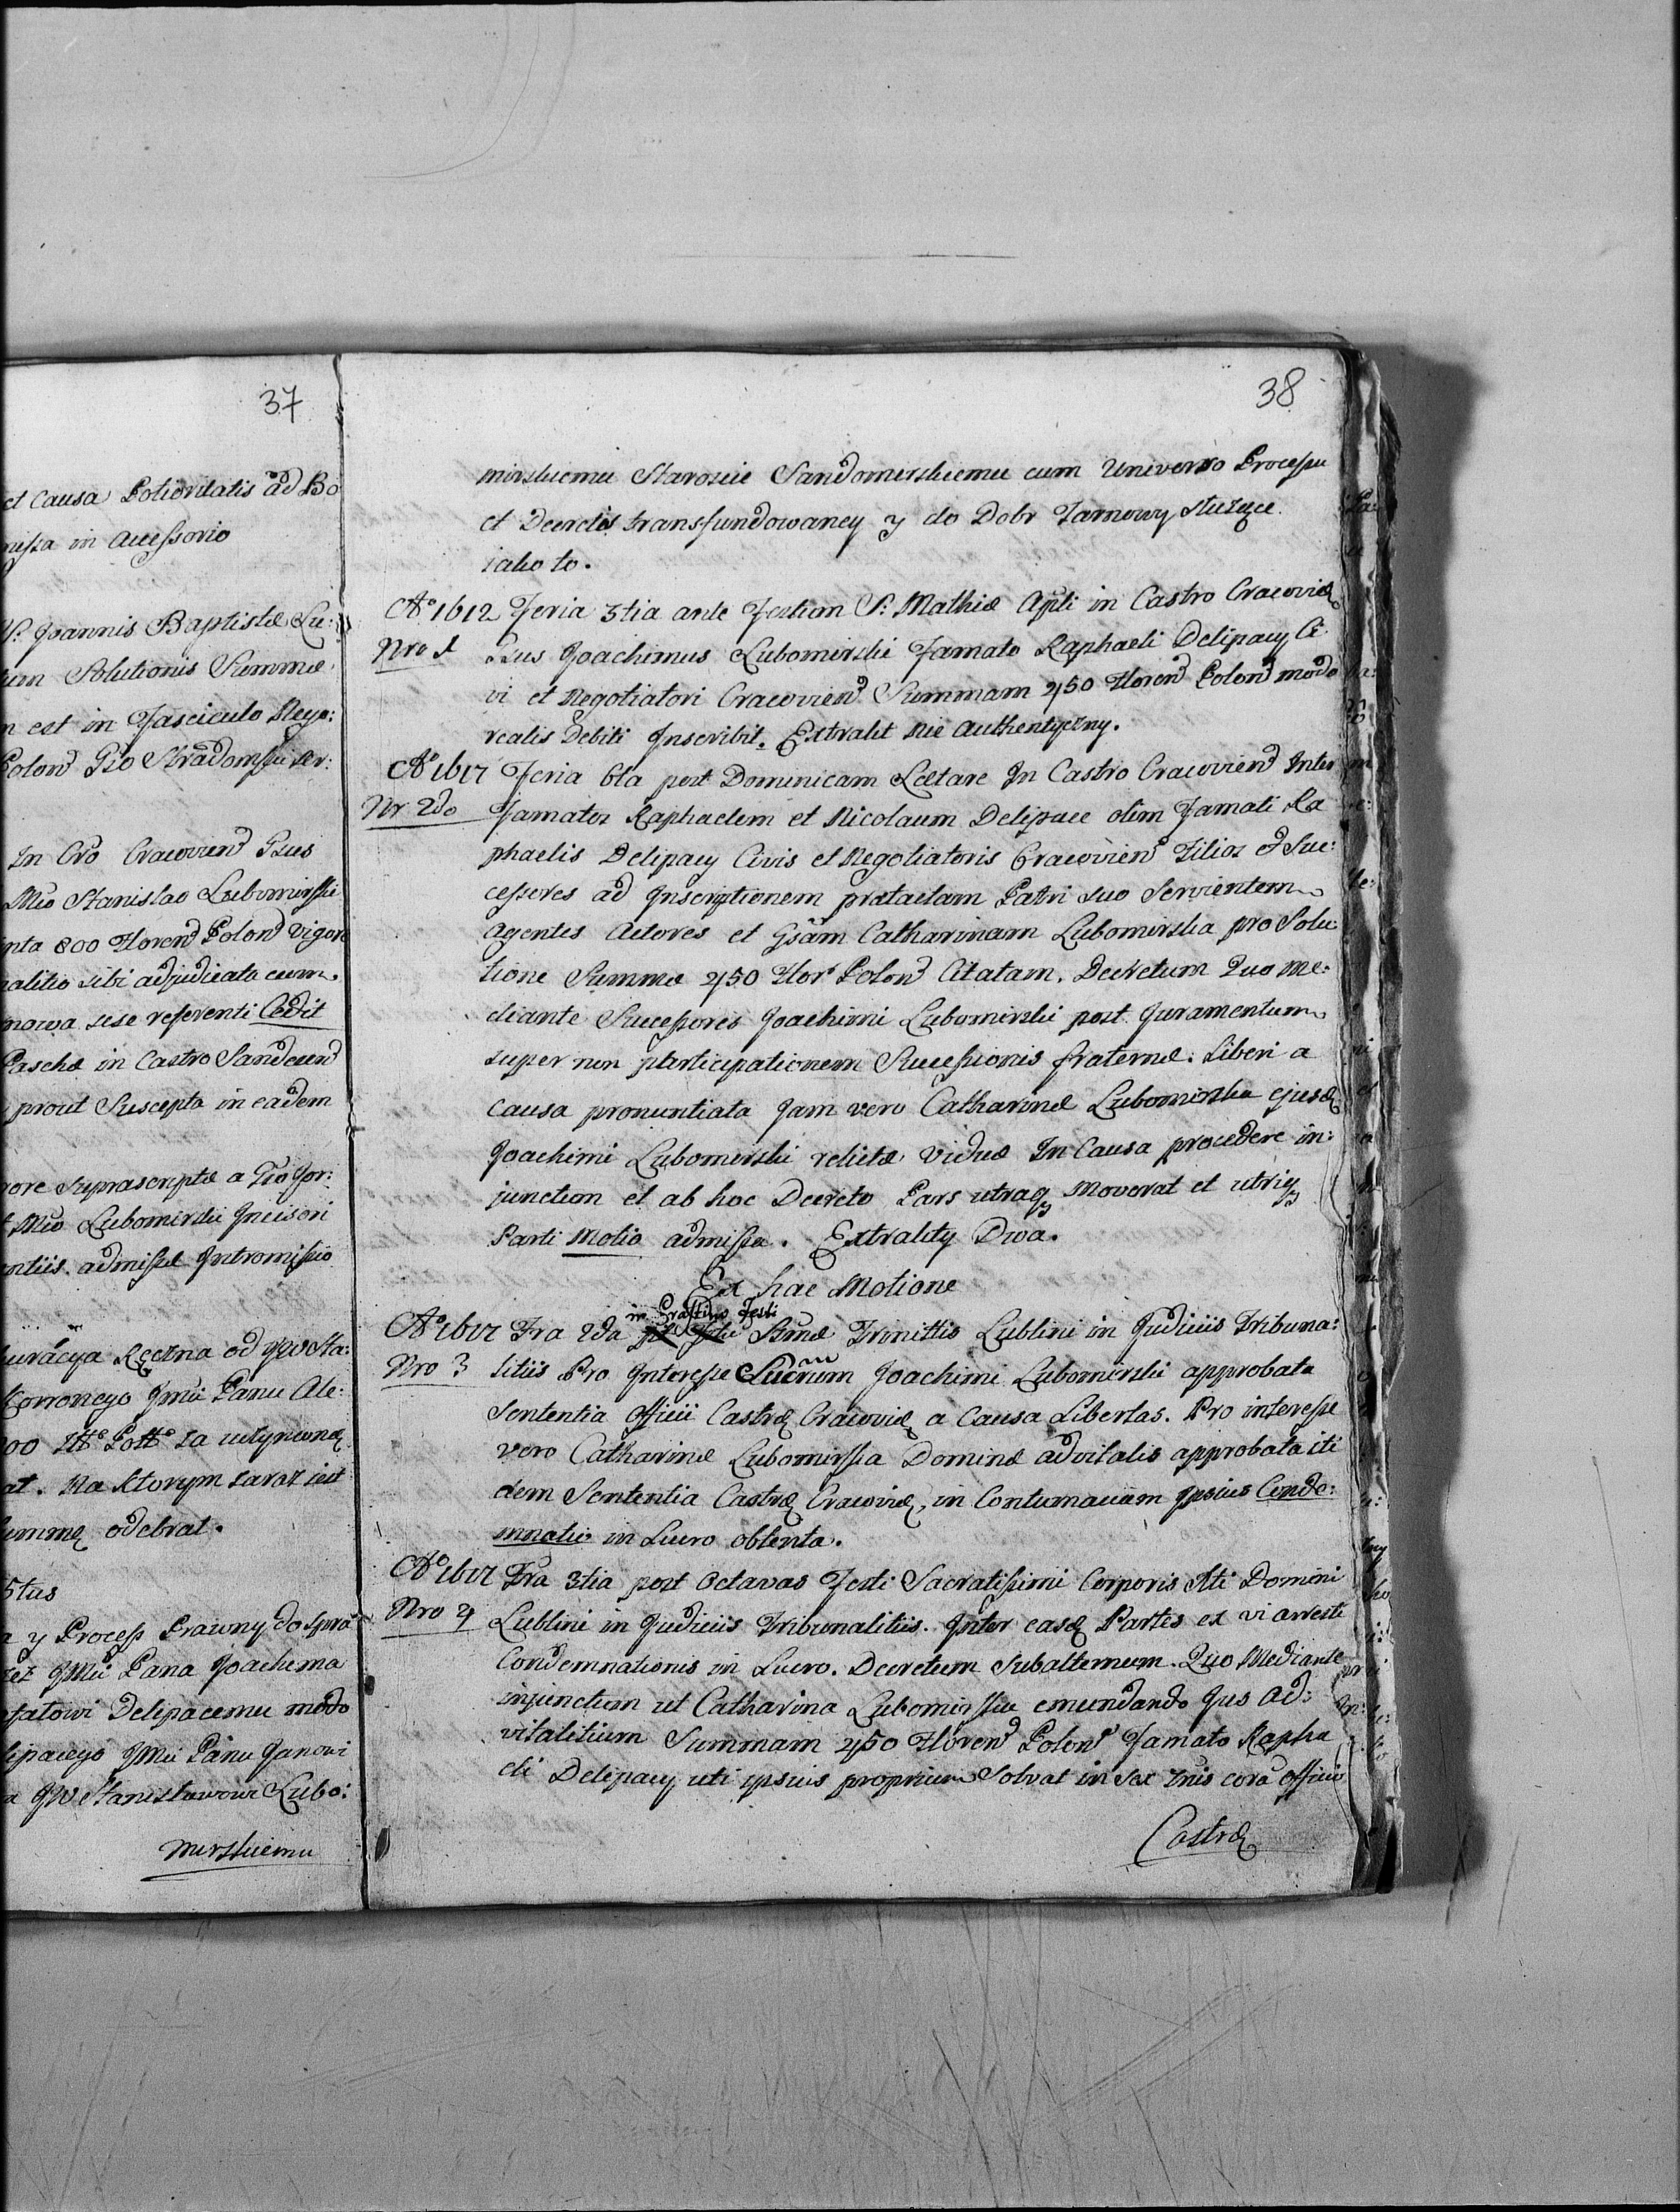 37
et Causa Potioritatis ad Bo
missa in Accessorio
S. Joannis Baptistæ Lu:
Solutionis Summæ
est in Fasciculo
Polond Gio Stradomski
In Cro Cracoviend Gsus
Mio Stanislao Lubomirski
800 Florend Polond vigore
sibi adjudicata cum
sese referenti Cedit
Paschæ in Castro Sandecend
prout Suscepta in eadem
Suprascriptæ a Gio
Mio Lubomirski Incisori
admissæ Intromissio
Ręczna od JW Sta:
Koronnego Jmci Panu Ale:
00
Na ktorym zaraz iest
Summę odebrał.
5tus
y Process Prawny do
Jmci Pana Joachima
Delipacemu modo
Jmci Panu Janowi
JW Stanisławowi Lubo:
mirskiemu
38
mirskiemu Staroscie Sandomirskiemu cum Universo Processu
et Decretis transfundowaney y do Dobr Tarnowy służące
iako to.
Aº 1612 Feria 3tia ante Festum S: Mathiæ Apli in Castro Cracovię
Nro 1 Gsus Joachimus Lubomirski Famato Raphaeli Delipacy Ci
vi et Negotiatori Cracoviend Summam 450 Florend Polond modo
realis Debiti Inscribit. Extrakt nie Authentyczny.
Aº 1617 Feria 6ta post Dominicam Lætare In Castro Cracoviend Inter
Nr 2do Famatos Raphaelem et Nicolaum Delipace olim Famati Ra
phaelis Delipacy Civis et Negotiatoris Cracoviend Filios et Suc:
cessores ad Inscriptionem prætactam Patri suo Servientem
Agentes Actores et Gsam Catharinam Lubomirska pro Solu:
tione Summæ 450 Flor Polond Citatam. Decretum Quo Me:
diante Successores Joachimi Lubomirski post Juramentum
super non participationem Successionis fraternæ. Liberi a
causa pronuntiata Jam vero Catharinæ Lubomirska ejusd
Joachimi Lubomirski relictæ Viduæ In Causa procedere in:
junctum et ab hoc Decreto Pars utraq Moverat et utriq
Parti Motio admissa. Extrakty Dwa.
Ex hac Motione
in Crastino Festi
Aº 1617 Fra 2da Ssmæ Trinittis Lublini in Judiciis Tribuna:
Nro 3 litiis Pro Interesse Succrum Joachimi Lubomirski approbata
Sententia Officii Castrę Cracovię a Causa Libertas. Pro interesse
vero Catharinæ Lubomirska Dominæ advitalis approbata iti
dem Sententia Castrę Cracovię, in Contumaciam Ipsius Conde:
mnatio in Lucro obtenta.
Aº 1617 Fra 3tia post Octavas Festi Sacratissimi Corporis Xti Domini
Nro 4 Lublini in Judiciis Tribunalitiis. Inter easd Partes ex vi arresti
Condemnationis in Lucro. Decretum Subalternum. Quo Mediante
injunctum ut Catharina Lubomirska emundando Jus Ad:
vitalitium Summam 450 Florend Polond Famato Rapha
eli Delipacy uti ipsius proprium Solvat in Sex Tnis cora Officio
Castrę